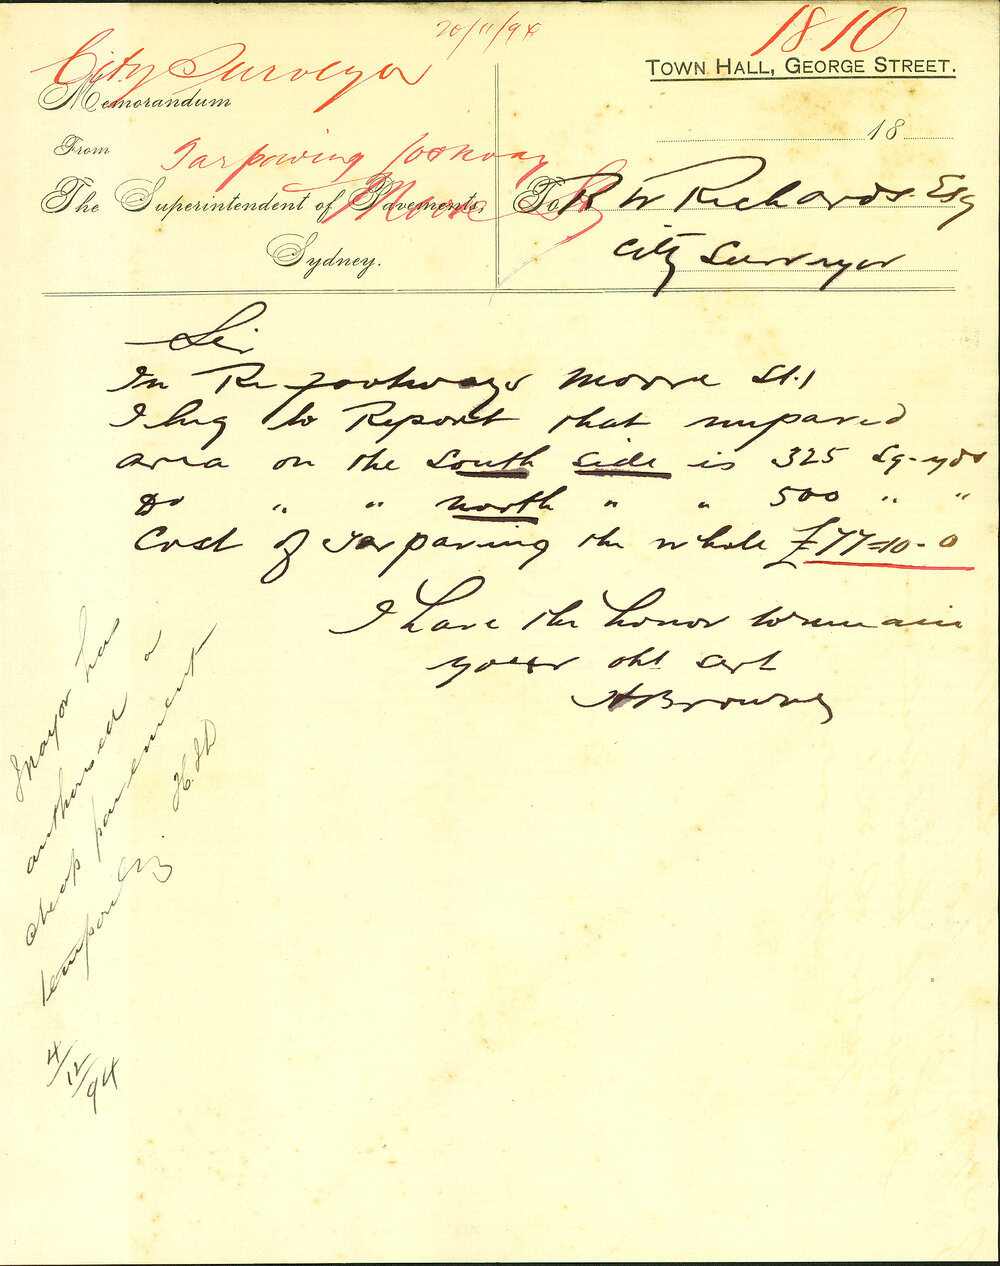 20/11/94
1810
City Surveyor
Memorandum
TOWN HALL, GEORGE STREET.
18
From
Tarpaving footway
Moore St
The Superintendent of Pavements,
Sydney.
To R W Richards Esq
City Surveyor
Sir
In Re footways Moore St.
I beg to Report that unpaved
area on the South Side is 325 Sq. yds
Do " " North " " 500 " "
Cost of Tarpaving the whole £77=10-0
I have the honor to remain
your obt Sert
A Browne
Mayor has
authorised a
cheap pavement
temporarily
4/12/94